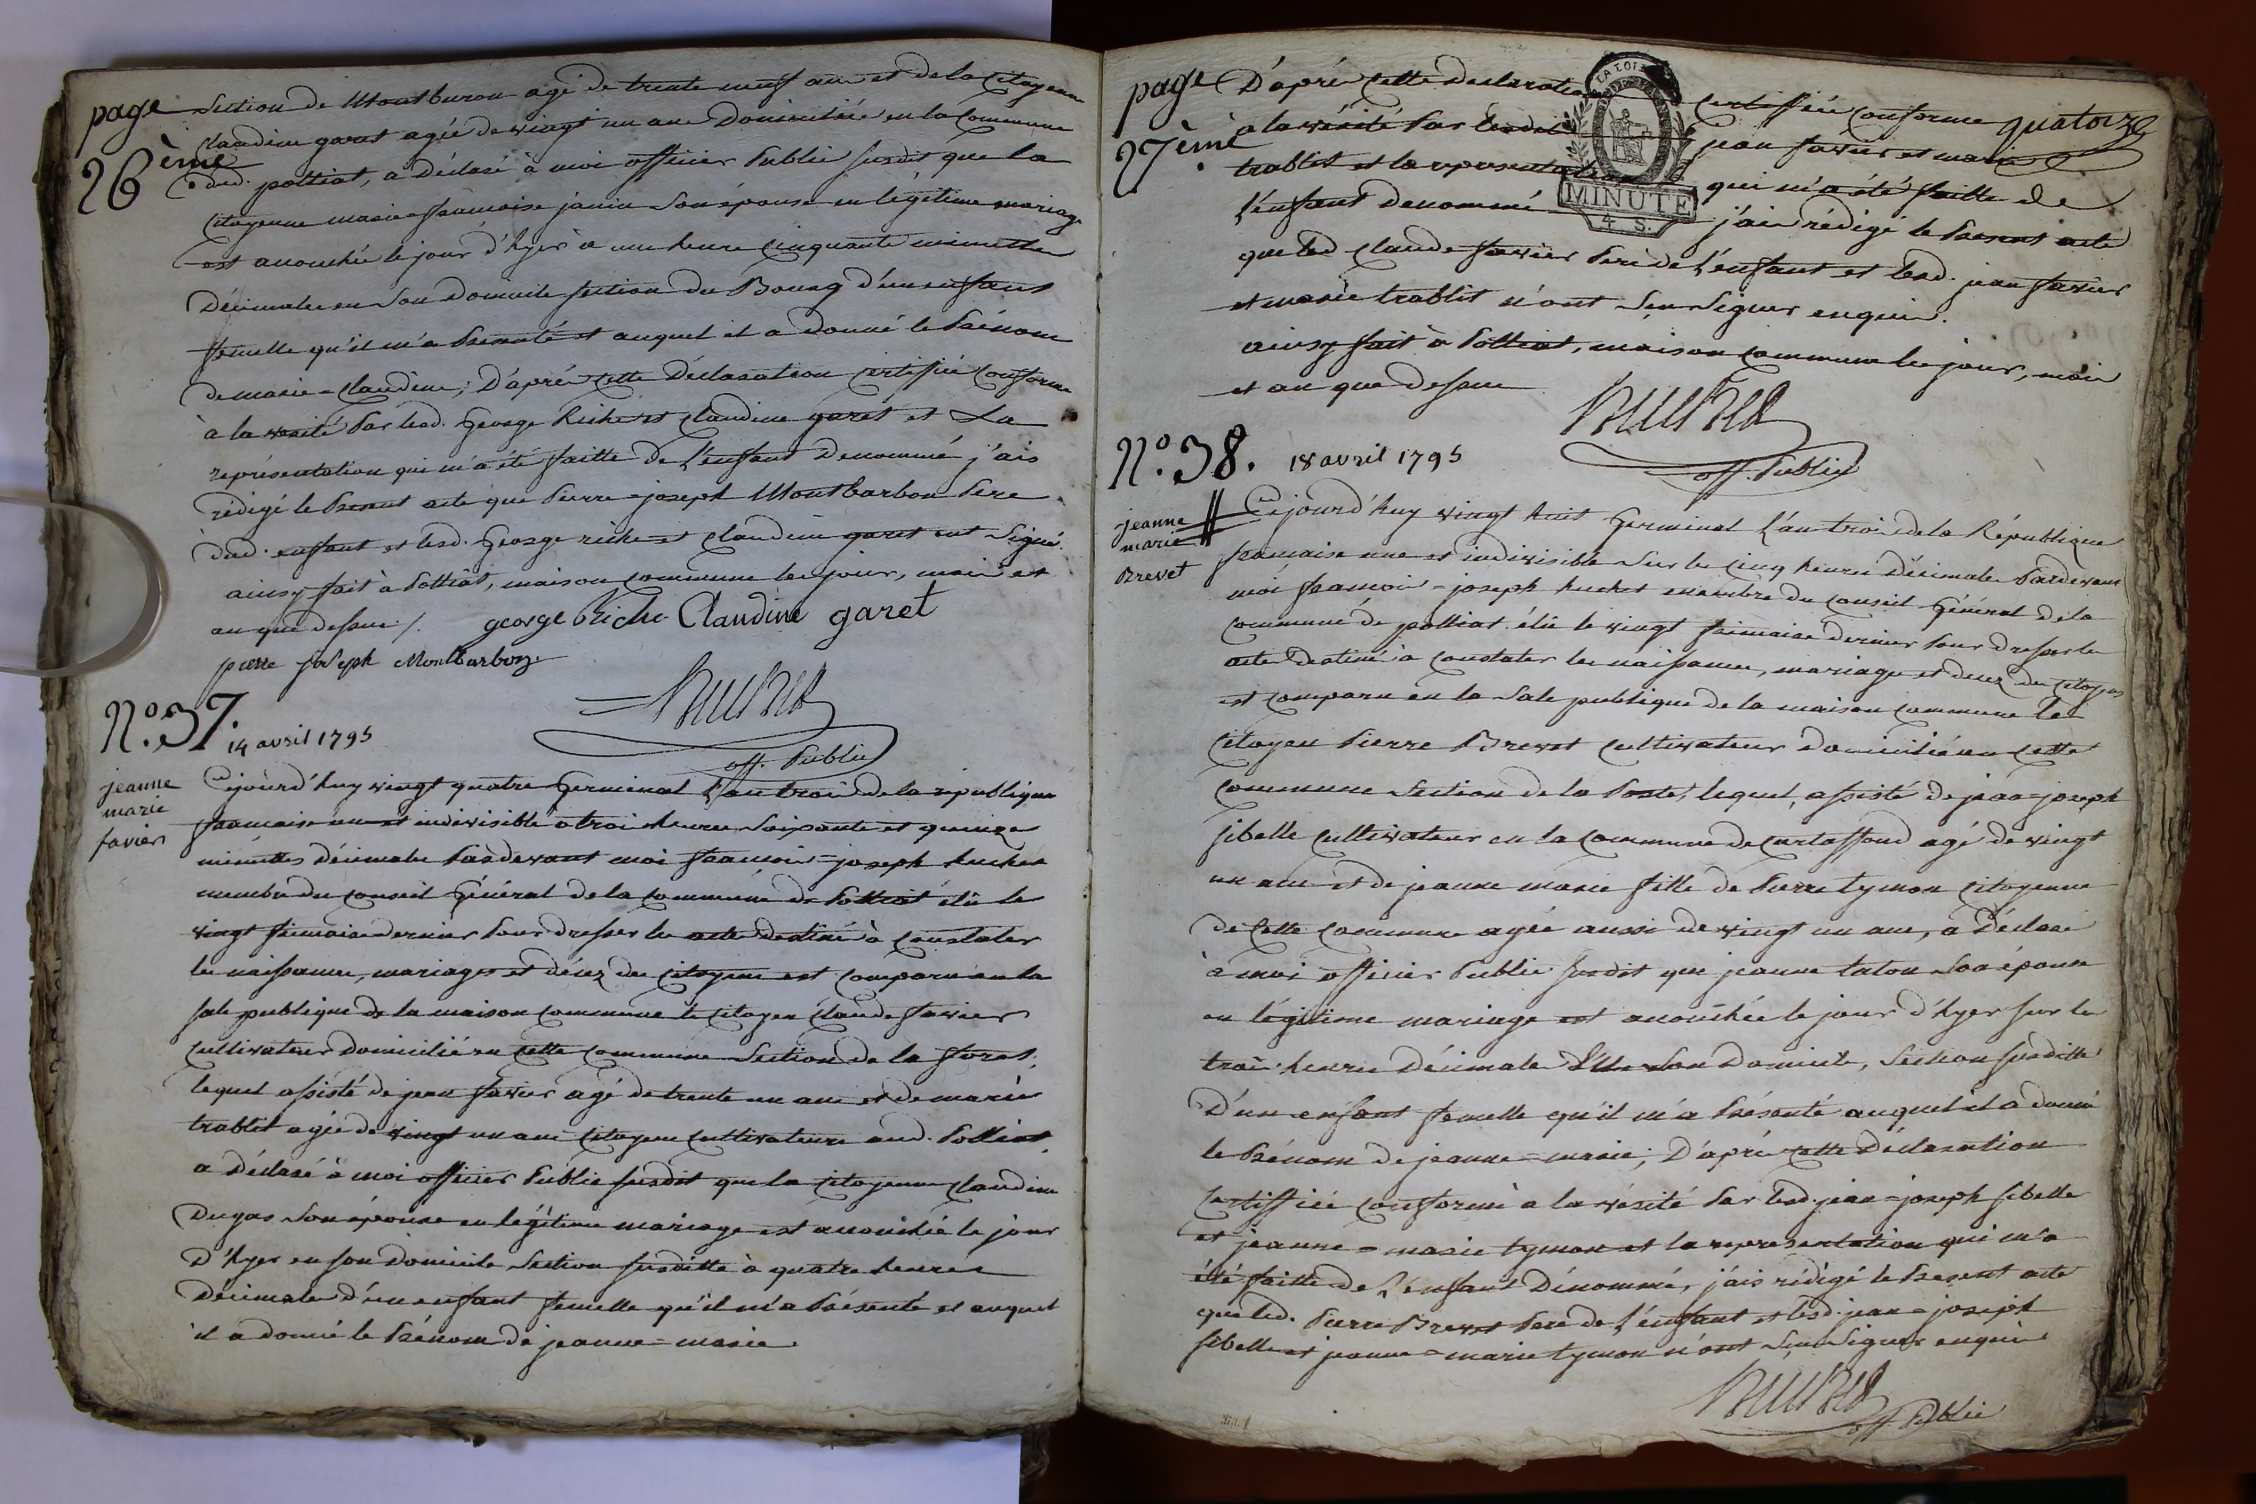 page
26ème
Section de Montburon agé de trente neuf ans et de la Citoyenne
Claudine garet agée de vingt un ans Domiciliée en la Commune
dud. polliat, a Déclaré à moi officier Public susdit que la
Citoyenne marie=françoise janin Son épouse en légitime mariage
est accouchée le jour d'hyer à une heure Cinquante minuttes
Décimales en Son Domicile Section du Bourg d'un enfant
femelle qu'il m'a Presenté et auquel il a donné le Prénom
de marie=Claudine; D'aprés cette Déclaration certifiée Conforme
à la verité Par lesd. George Riche et Claudine garet et La
représentation qui m'a été faitte de L'enfant Denommé j'ais
rédigé le Present acte que Pierre=joseph Montbarbon Pere
dud. enfant et lesd. George riche et Claudine garet ont Signé.
ainsy fait à Polliat, maison Commune les jour, mois et
an que dessus /.
george Riche Claudine garet
pierre joseph Montbarbon
off. Public
N.º 37.
14 avril 1795
jeanne
marie
favier
Cejourd'huy vingt quatre Germinal L'an trois de la république
francaise une et indivisible à trois heures Soixante et quinze
minuttes Décimales Pardevant moi francois=joseph huchet
membre du Conseil Général de la Commune de Polliat élû le
vingt frimaire dernier Pour dresser les acte destiné à Constater
les naissances, mariages et décez des Citoyens est comparu en la
sale publique de la maison commune le Citoyen Claude favier
Cultivateur domicilié en cette Commune Section de la foret,
lequel assisté de jean favier agé de trente un ans et de marie
trablit agée de vingt un ans Citoyens Cultivateurs aud. Polliat,
a Déclaré à moi officier Public susdit que la Citoyenne Claudine
Dugas Son épouse en légitime mariage est accouchée le jour
D'hyer en son Domicile Section susditte à quatre heures
Décimales d'un enfant femelle qu'il m'a Présenté et auquel
il a donné le Prénom de jeanne=marie
page
27ème
quatorze
LA LOI
MINUTE
4 S.
D'aprés cette Declaration certiffiée Conforme
a la vérité Par lesdit jean favier et marie
trablit et la representation qui m'a été faitte de
L'enfant denommé j'ais rédigé le Present acte
que led Claude favier Pere de L'enfant et lesd. jean favier
et marie trablit n'ont Seu Signer enquis.
ainsy fait à Polliat, maison Commune les jour, mois
et an que dessus
off. Public
N.º 38.
18 avril 1795
jeanne
marie
Brevet
Cejourd'huy vingt huit Germinal L'an trois de la République
francaise une et indivisible Sur les cinq heures Décimales Pardevant
moi francois=joseph huchet membre du Conseil Général de la
commune de polliat élû le vingt frimaire dernier Pour dresser les
acte destiné à Constater les naissances, mariages et decez des Citoyens
est comparu en la Sale publique de la maison commune le
Citoyen Pierre Brevet Cultivateur domicilié en cette
commune Section de la Poste, lequel, assisté de jean=joseph
sibelle Cultivateur en la Commune de Curtaffond agé de vingt
un ans et de jeanne marie fille de Pierre tymon Citoyenne
de cette Commune agée aussi de vingt un ans, a Déclaré
à moi officier Public Susdit que jeanne taton Son épouse
en légitime mariage est accouchée le jour d'hyer sur les
trois heures Décimales Son Domicile, Section susditte
D'un enfant femelle qu'il m'a Présenté auquel il a donné
le Prénom de jeanne=marie; D'aprés cette Déclaration
Certiffiée Conforme à la vérité Par lesd. jean=joseph sibelle
et jeanne=marie tymon et la representation qui m'a
été faitte de L'enfant Dénommé, j'ais rédigé le Present acte
que led. Pierre Brevet Pere de L'enfant et lesd. jean=joseph
sibelle et jeanne=marie tymon n'ont Seu Signer enquis
off. Public